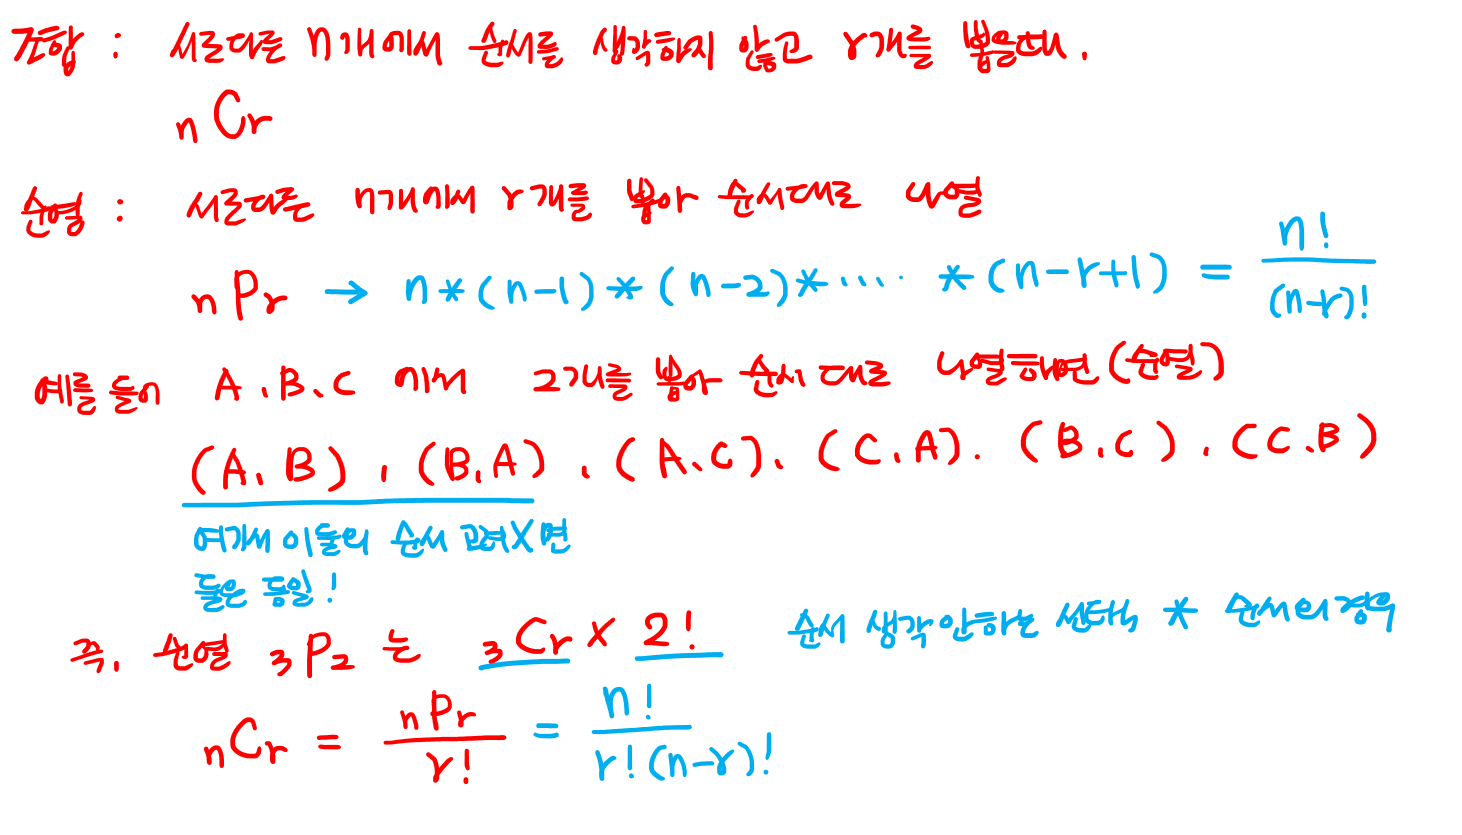 조합 : 서로다른 n개에서 순서를 생각하지 않고 r개를 뽑을때.
nCr
순열 : 서로다른 n개에서 r개를 뽑아 순서대로 나열
nPr → n*(n-1)*(n-2)*···· *(n-r+1) = n!/(n-r)!
예를 들어 A, B, C 에서 2개를 뽑아 순서 대로 나열하면 (순열)
(A, B), (B, A), (A, C), (C, A). (B, C), (C.B)
여기서 이둘의 순서 고려X면
둘은 동일!
즉, 순열 3P2 는 3Cr x 2! 순서 생각안하는 선택, * 순서의 경우
nCr = nPr/r! = n!/r!(n-r)!